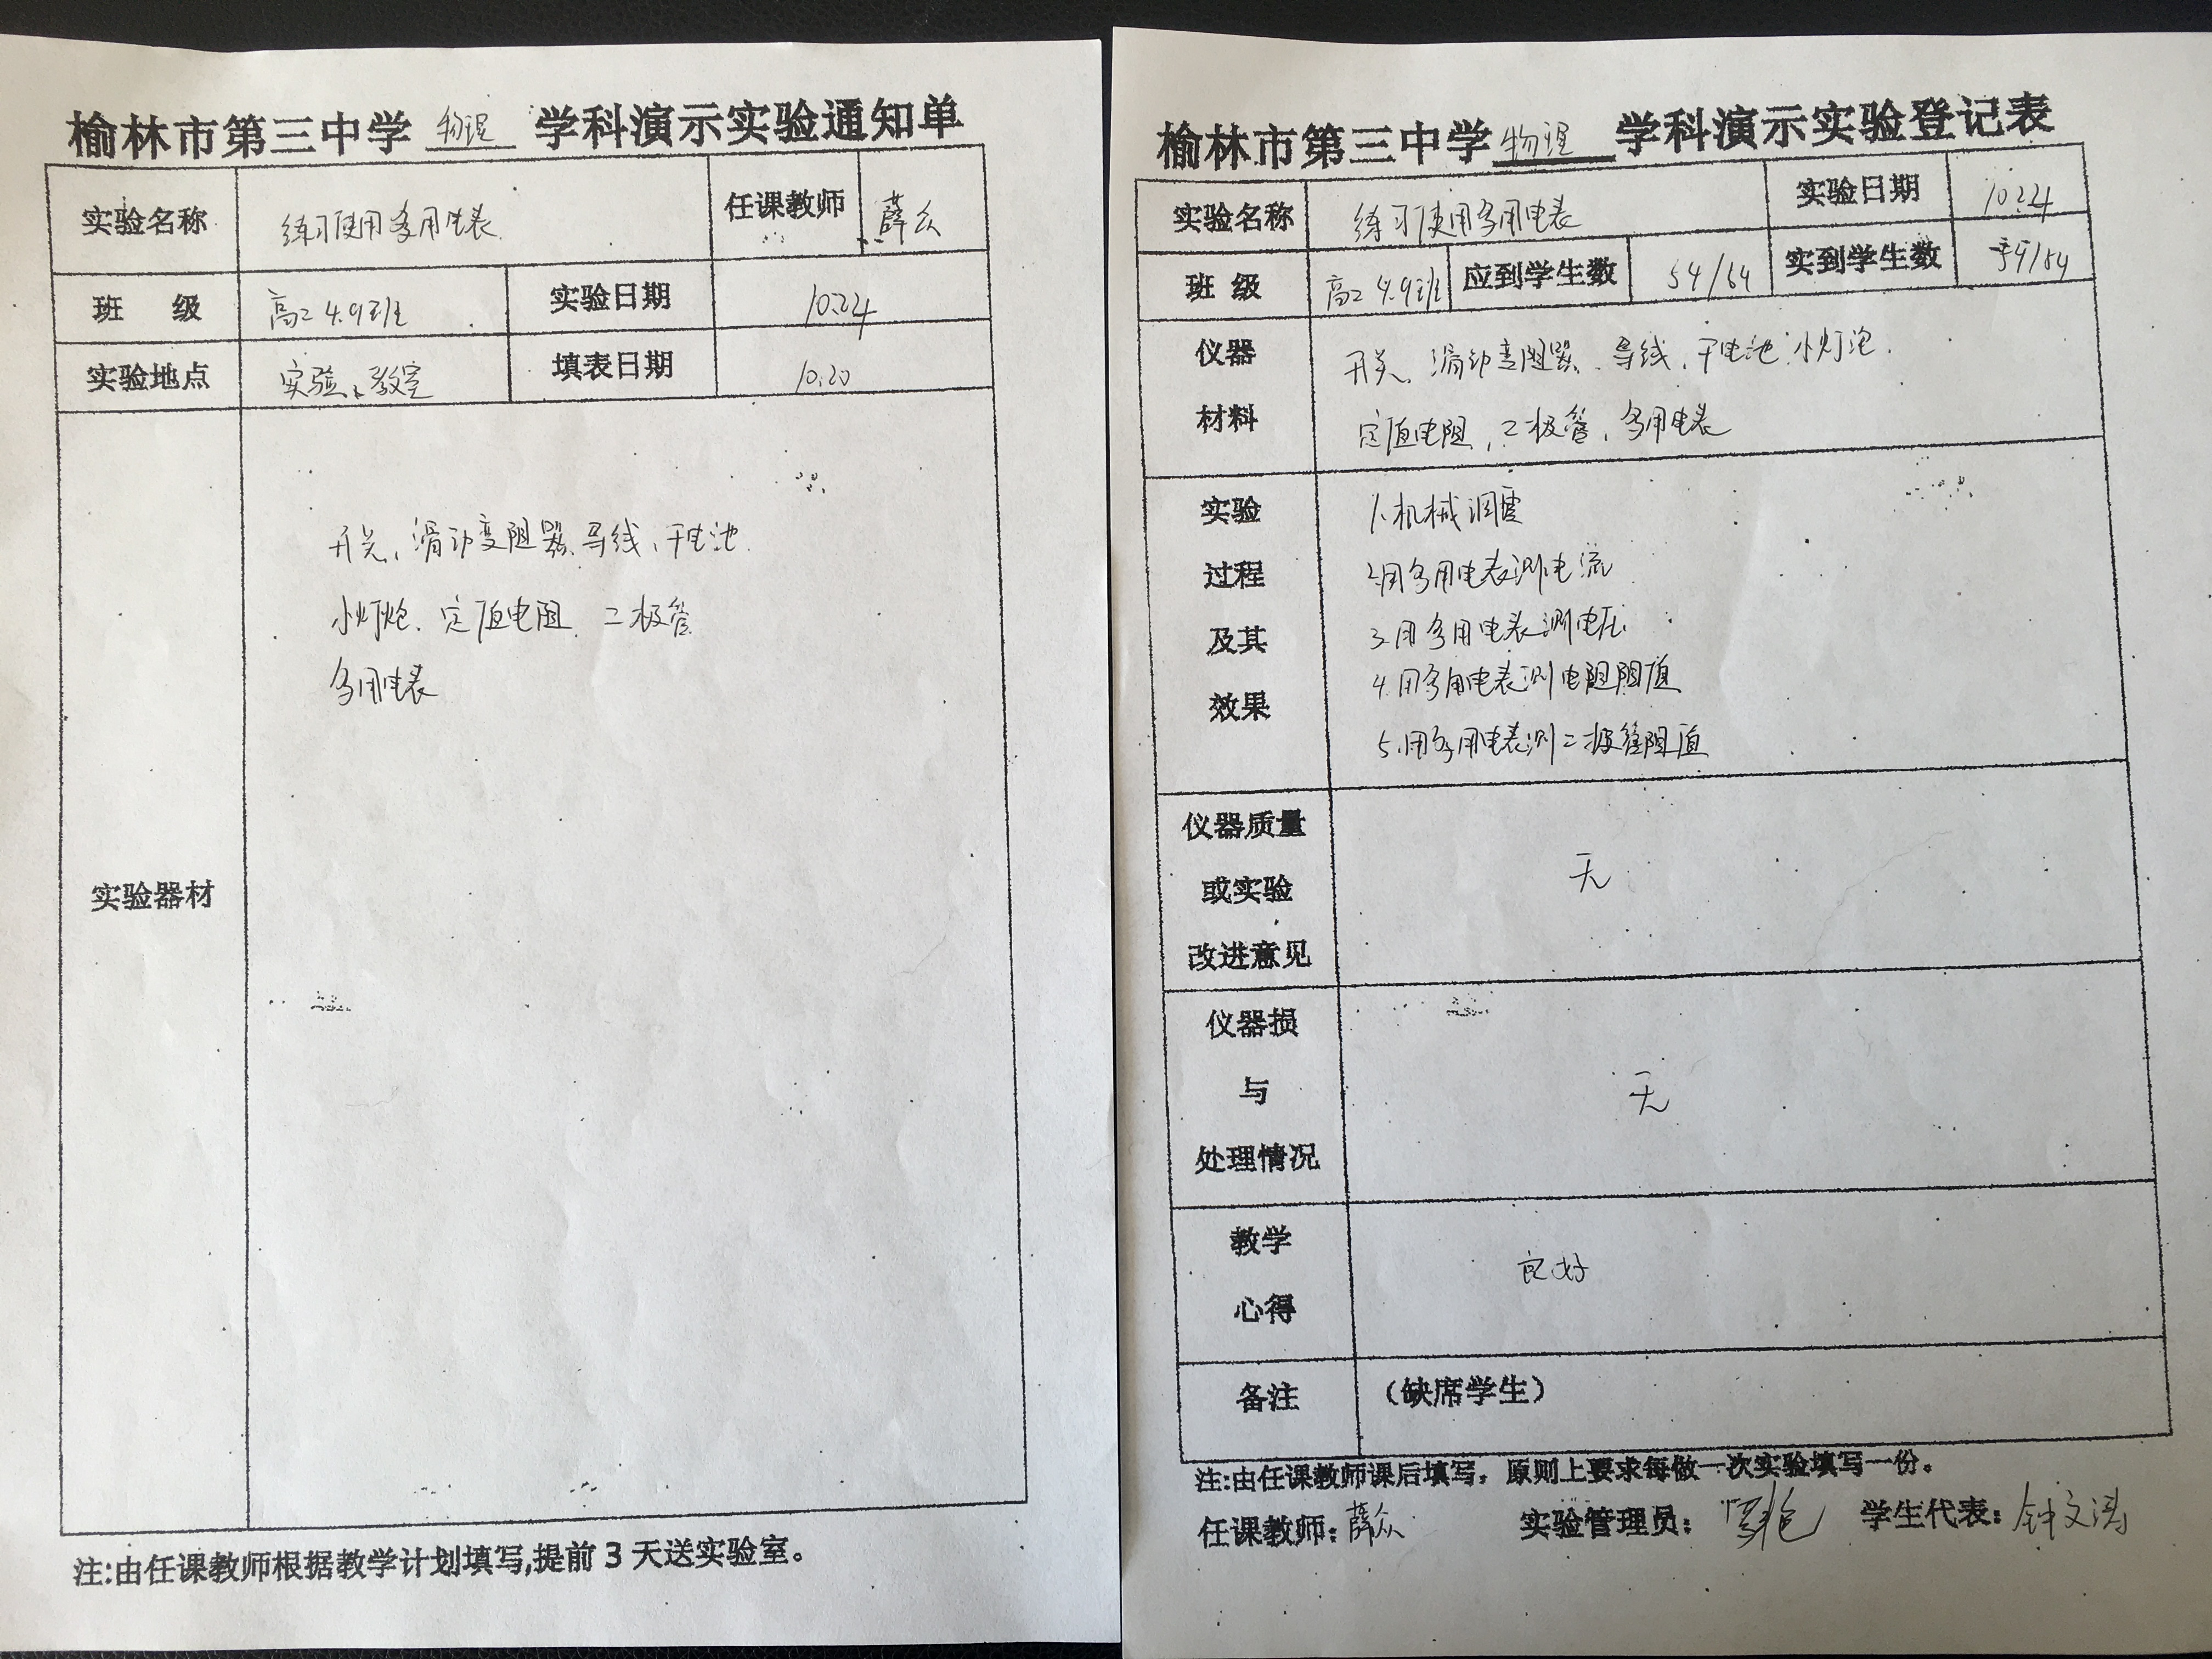 榆林市第三中学 物理 学科演示实验通知单
实验名称 练习使用多用电表 任课教师 薛众
班 级 高二4.9班 实验日期 10.24
实验地点 实验、教室 填表日期 10.20
实验器材
开关、滑动变阻器、导线、干电池
小灯炮、定值电阻、二极管
多用电表
注:由任课教师根据教学计划填写,提前3天送实验室。
榆林市第三中学 物理 学科演示实验登记表
实验名称 练习使用多用电表 实验日期 10.24
班 级 高二4.9班 应到学生数 54/54 实到学生数 54/54
仪器 材料
开关、滑动变阻器、导线、干电池、小灯泡、
定值电阻、二极管、多用电表
实验 过程 及其 效果
1.机械调零
2.用多用电表测电流
3.用多用电表测电压
4.用多用电表测电阻阻值
5.用多用电表测二极管阻值
仪器质量 或实验 改进意见
无
仪器损 与 处理情况
无
教学 心得
良好
备注 （缺席学生）
注:由任课教师课后填写，原则上要求每做一次实验填写一份。
任课教师:薛众 实验管理员: 学生代表: